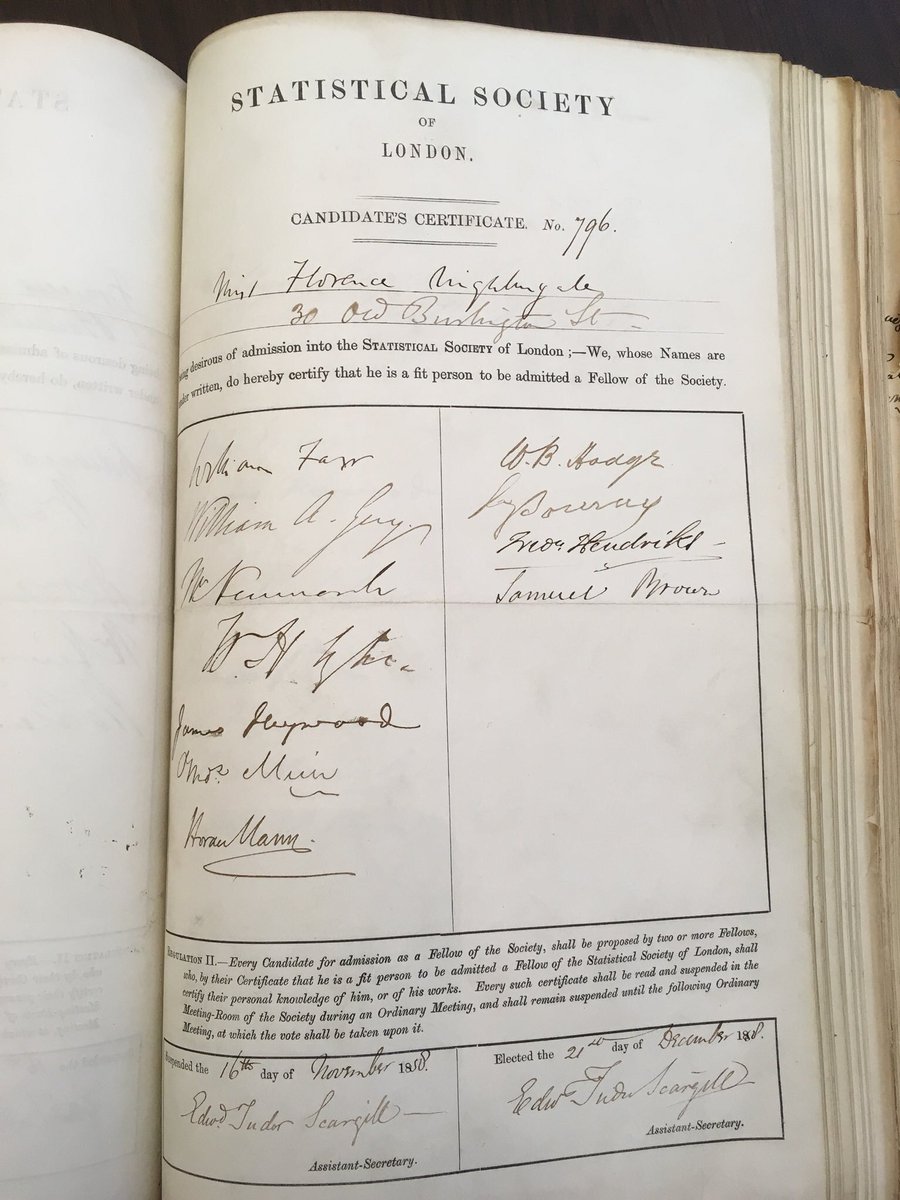 STATISTICAL SOCIETY
OF
LONDON.
CANDIDATE'S CERTIFICATE. No. 796.
Miss Florence Nightingale
30 Old Burlington St
being desirous of admission into the STATISTICAL SOCIETY of London ;—We, whose Names are
under written, do hereby certify that he is a fit person to be admitted a Fellow of the Society.
William Farr
William A. Guy.
Wm Newmarch
W. H.
James Heywood
Thos. Muir
Horace Mann.
W. B. Hodge
Bowring
Fredk Hendriks
Samuel Brown
REGULATION II.—Every Candidate for admission as a Fellow of the Society, shall be proposed by two or more Fellows,
who, by their Certificate that he is a fit person to be admitted a Fellow of the Statistical Society of London, shall
certify their personal knowledge of him, or of his works. Every such certificate shall be read and suspended in the
Meeting-Room of the Society during an Ordinary Meeting, and shall remain suspended until the following Ordinary
Meeting, at which the vote shall be taken upon it.
Suspended the 16th day of November 1858.
Edwd. Tudor Scargill
Assistant-Secretary.
Elected the 21st day of December 1858.
Edwd. Tudor Scargill
Assistant-Secretary.